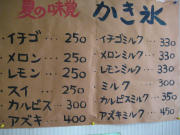 夏の味覚 かき氷
イチゴ … 250
メロン … 250
レモン … 250
スイ … 250
カルピス … 300
アズキ … 400
イチゴミルク … 330
メロンミルク … 330
レモンミルク … 330
ミルク … 300
カルピスミルク … 350
アズキミルク … 450